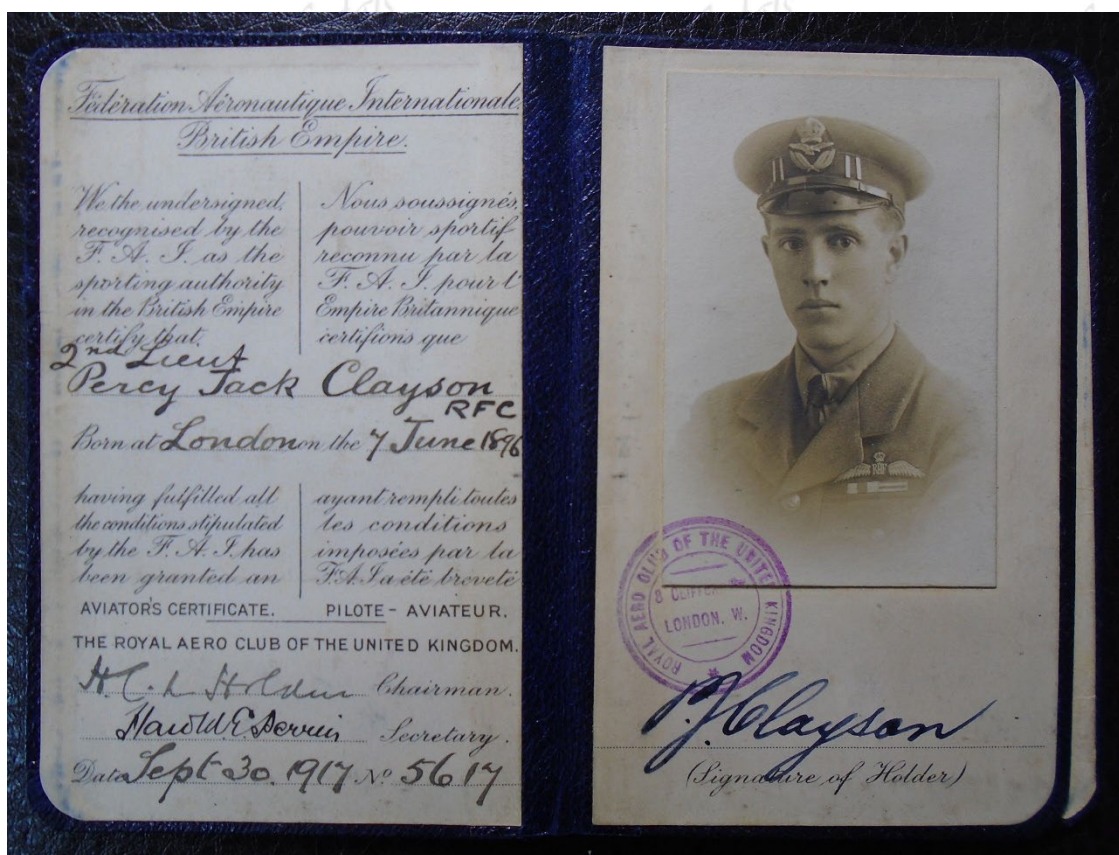 Fédération Aéronautique Internationale.
British Empire.
We the undersigned,
recognised by the
F. A. I. as the
sporting authority
in the British Empire
certify that,
Nous soussignés,
pouvoir sportif
reconnu par la
F. A. I. pour l'
Empire Britannique
certifions que
2nd Lieut
Percy Jack Clayson
RFC
Born at London on the 7 June 1896
having fulfilled all
the conditions stipulated
by the F. A. I. has
been granted an
ayant rempli toutes
les conditions
imposées par la
F. A. I. a été breveté
AVIATOR'S CERTIFICATE. PILOTE - AVIATEUR.
THE ROYAL AERO CLUB OF THE UNITED KINGDOM.
H C. L Holden Chairman.
Harold E Perrin Secretary.
Date Sept 30. 1917 No 5617
RFC
ROYAL AERO CLUB OF THE UNITED KINGDOM
LONDON. W.
P. J. Clayson
(Signature of Holder)